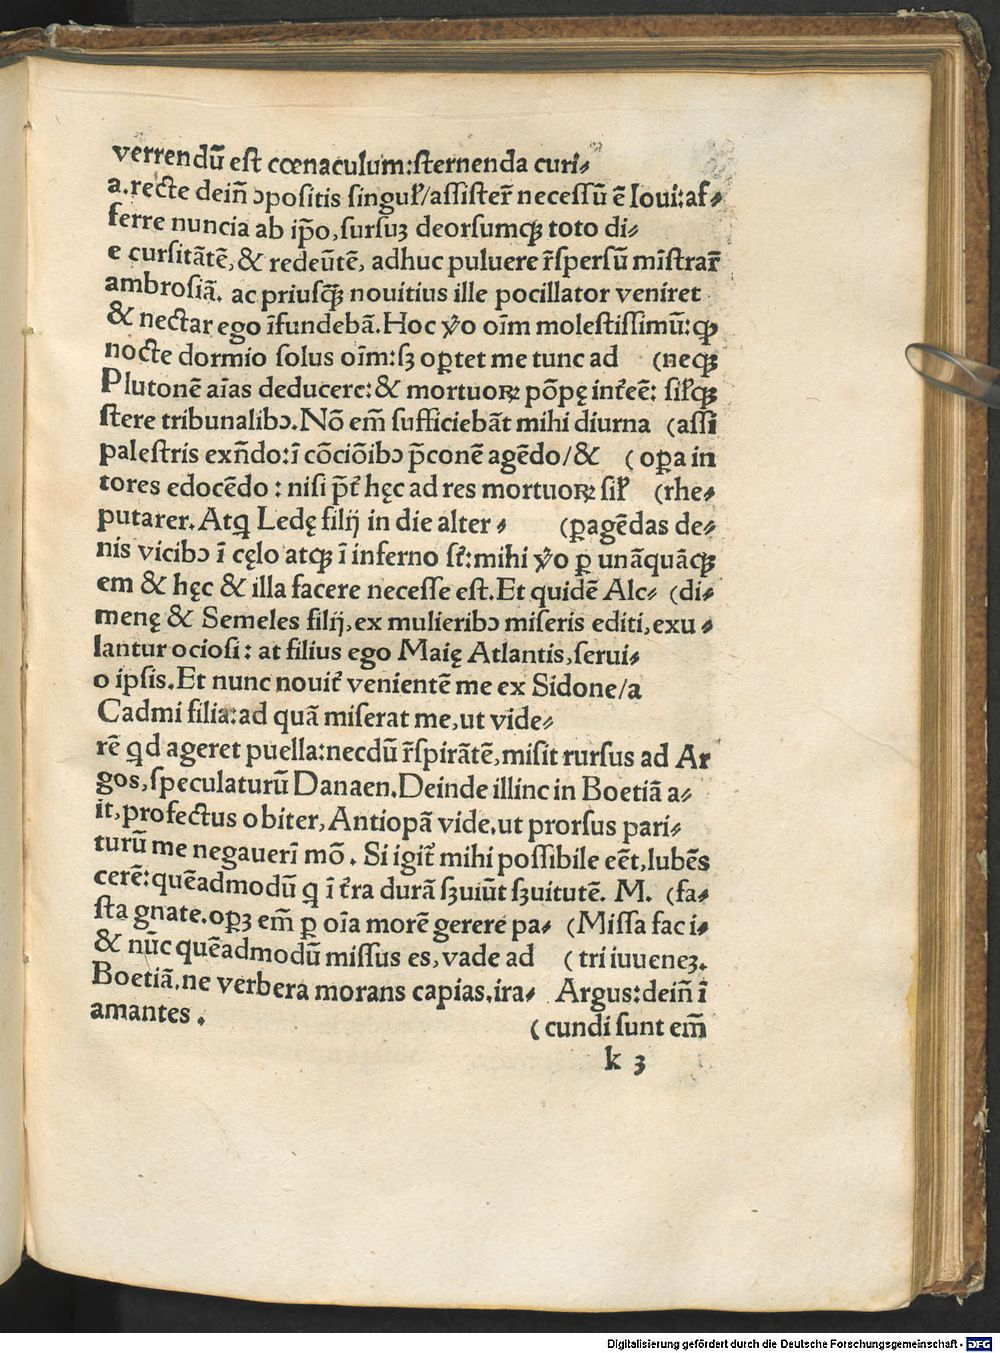 verrendũ est cœnaculum:sternenda curi⸗
a.recte dein̄ ↄpositis singuł/assister̄ necessũ ē Ioui:af⸗
ferre nuncia ab ip̄o,sursuꝫ deorsumqꝫ toto di⸗
e cursitãtē,& redeũtē, adhuc puluere r̄spersũ mīstrar̄
ambrosiã. ac priusq̄ꝫ nouitius ille pocillator veniret
& nectar ego īfundebã.Hoc v̊o oīm molestissimũ:ꝙ
nocte dormio solus oīm:sꝫ oꝑtet me tunc ad (neqꝫ
Plutonē aīas deducere:& mortuoꝝ põpę inťeē: siłqꝫ
stere tribunalibↄ.Nõ em̄ sufficiebãt mihi diurna (assi
palestris exn̄do:ī cõciõibↄ p̄conē agēdo/& (oꝑa in
tores edocēdo: nisi p̄ť hęc ad res mortuoꝝ sił (rhe⸗
putarer.Atꝗ Ledę filij in die alter⸗ (ꝑagēdas de⸗
nis vicibↄ ī cęlo atqꝫ ī inferno sť:mihi v̊o ꝑ unãquãqꝫ
em & hęc & illa facere necesse est.Et quidē Alc⸗ (di⸗
menę & Semeles filij,ex mulieribↄ miseris editi,exu⸗
lantur ociosi: at filius ego Maię Atlantis,serui⸗
o ipsis.Et nunc nouiť venientē me ex Sidone/a
Cadmi filia:ad quã miserat me,ut vide⸗
rē ꝗd ageret puella:necdũ r̄spirãtē,misit rursus ad Ar
gos,speculaturũ Danaen.Deinde illinc in Boetiã a⸗
it,profectus obiter,Antiopã vide.ut prorsus pari⸗
turũ me negauerī mõ. Si igiť mihi possibile eēt,lubēs
cerē:quēadmodũ ꝗ ī ťra durã sꝫuiũt sꝫuitutē. M. (fa⸗
sta gnate.opꝫ em̄ ꝑ oīa morē gerere pa⸗ (Missa faci⸗
& nũc quēadmodũ missus es,vade ad (tri iuueneꝫ.
Boetiã.ne verbera morans capias.ira⸗ Argus:dein̄ ī
amantes. (cundi sunt em̄
k 3
Digitalisierung gefördert durch die Deutsche Forschungsgemeinschaft - DFG